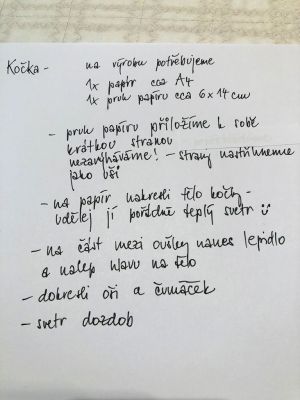 Kočka - na výrobu potřebujeme
1x papír cca A4
1x pruh papíru cca 6x14cm
- pruh papíru přiložíme k sobě
krátkou stranou
nezahýbáváme! - strany nastřihneme
jako uši
- na papír nakresli tělo kočky -
udělej jí pořádně teplý svetr ☺
- na část mezi oušky nanes lepidlo
a nalep hlavu na tělo
- dokresli oči a čumáček
- svetr dozdob